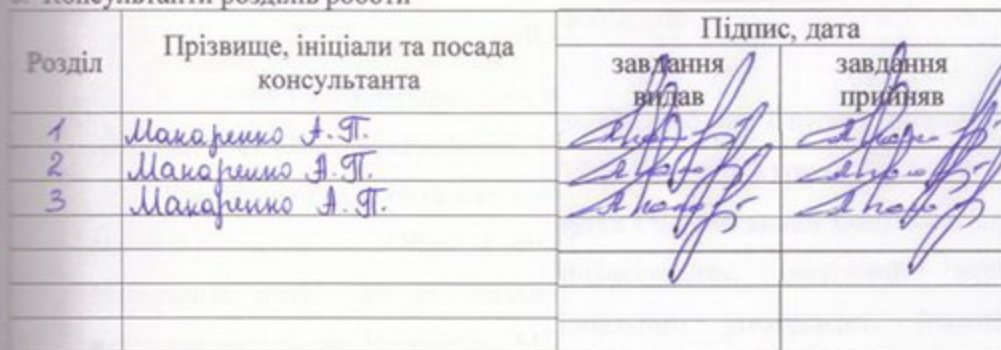 Консультанти розділів роботи
Розділ
Прізвище, ініціали та посада
консультанта
Підпис, дата
завдання
видав
завдання
прийняв
1 Макаренко А.П.
2 Макаренко А.П.
3 Макаренко А.П.